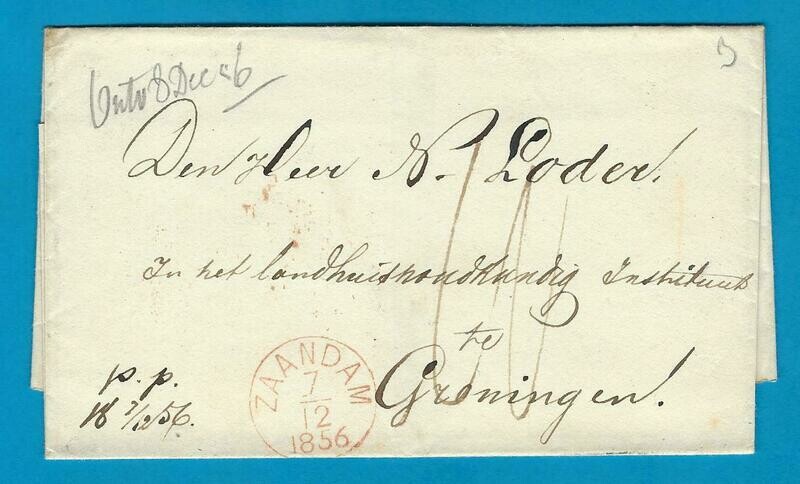 Ontv 8 Dec 56
Den Heer N. Loder.
In het landhuishoudkundig Instituut
te
Groningen.
p.p.
18 7/12 56.
ZAANDAM
7
12
1856